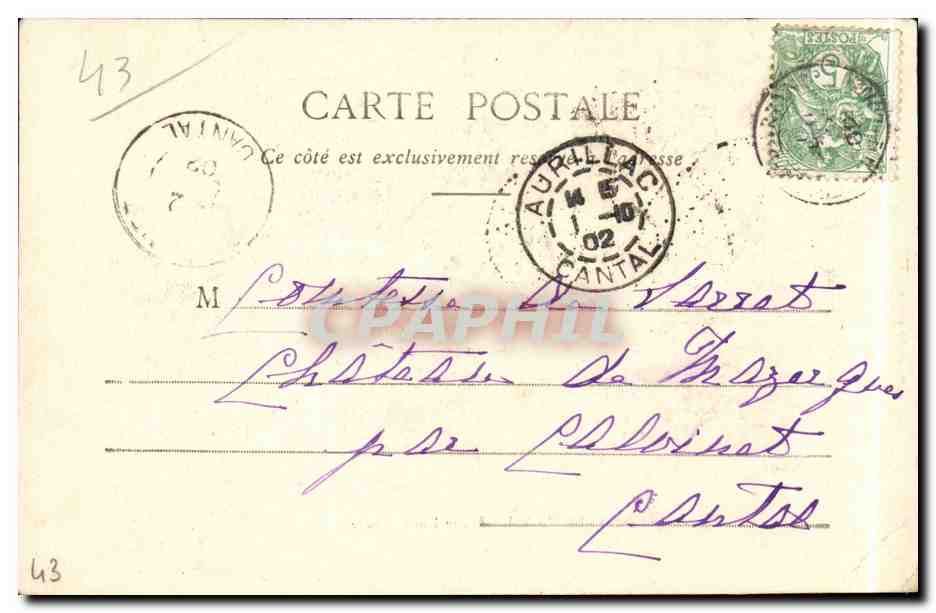 43
POSTES
5c
CARTE POSTALE
CANTAL
02
2
Ce côté est exclusivement réservé à l'adresse
AURILLAC
14 5
1 -10
02
CANTAL
M Comtesse de Sarrat
CPAPHIL
Château de Mazergues
par Calvinet
Cantal
43